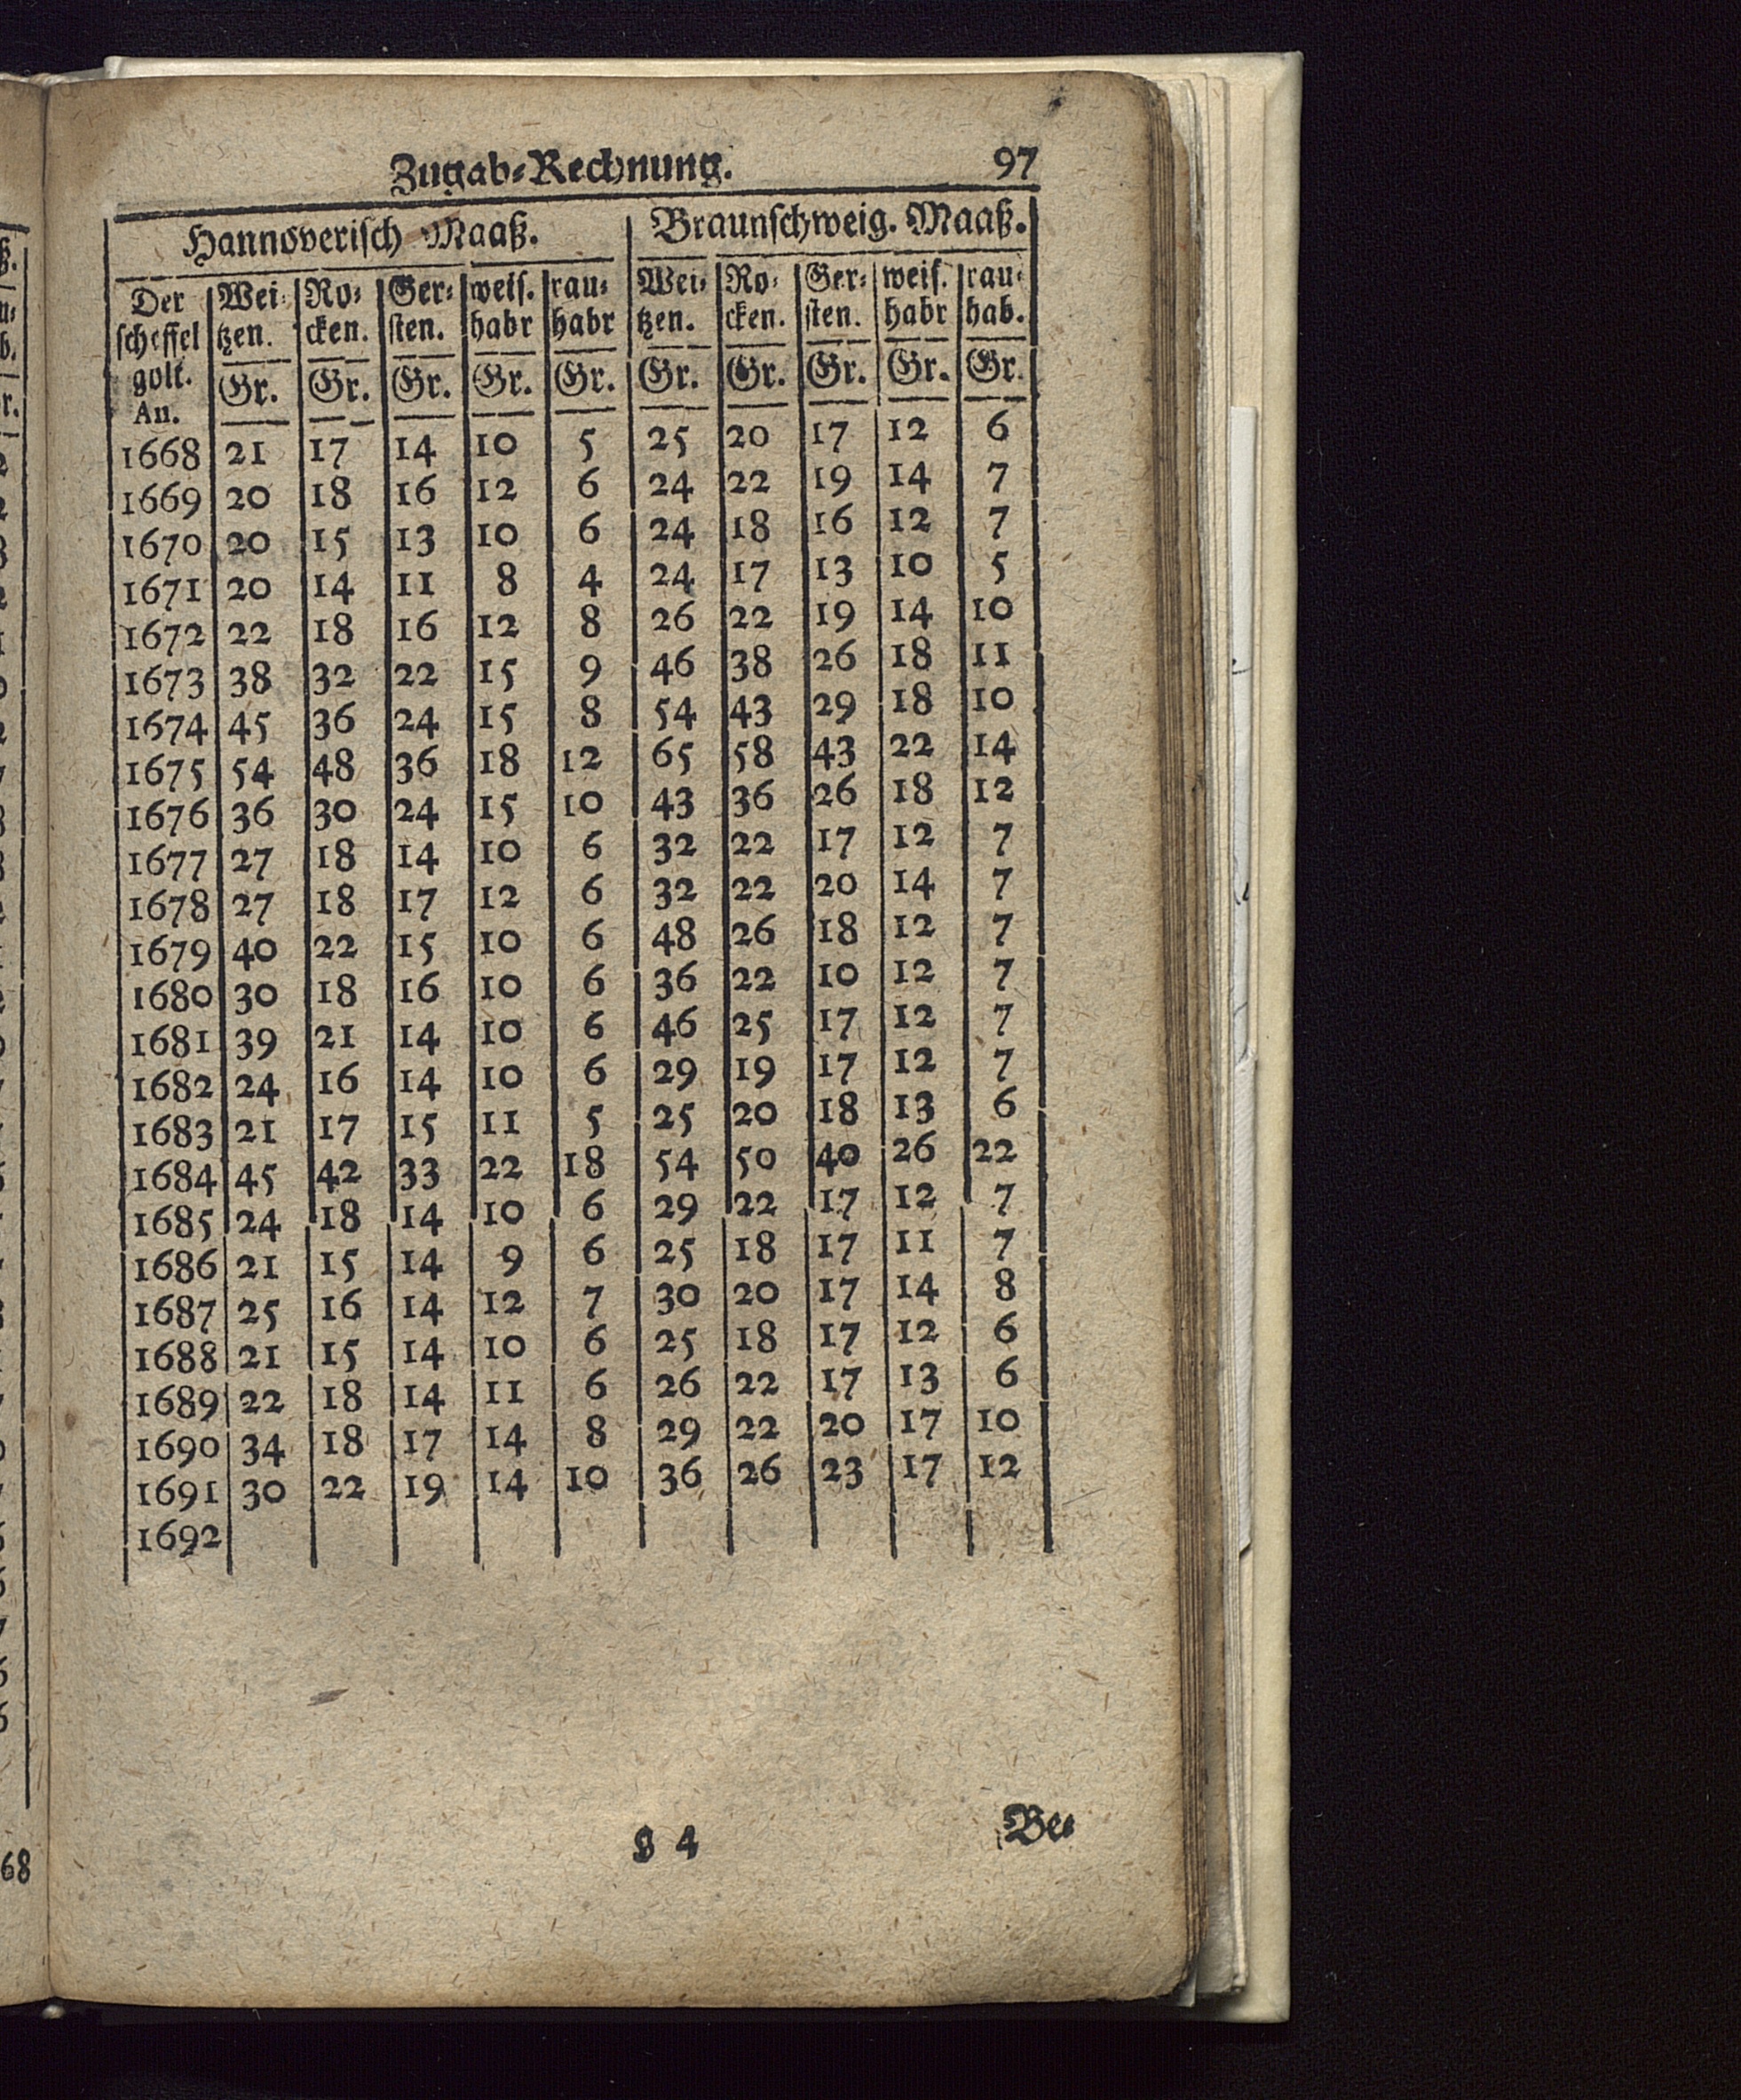 Zugab-Rechnung. 97
Hannoverisch Maaß. Braunschweig. Maaß.
Der Wei- Ro- Ger- weis. rau- Wei- Ro- Ger- weis. rau-
scheffel tzen. cken. sten. habr habr tzen. cken. sten. habr hab.
golt. Gr. Gr. Gr. Gr. Gr. Gr. Gr. Gr. Gr. Gr.
An.
1668 21 17 14 10 5 25 20 17 12 6
1669 20 18 16 12 6 24 22 19 14 7
1670 20 15 13 10 6 24 18 16 12 7
1671 20 14 11 8 4 24 17 13 10 5
1672 22 18 16 12 8 26 22 19 14 10
1673 38 32 22 15 9 46 38 26 18 11
1674 45 36 24 15 8 54 43 29 18 10
1675 54 48 36 18 12 65 58 43 22 14
1676 36 30 24 15 10 43 36 26 18 12
1677 27 18 14 10 6 32 22 17 12 7
1678 27 18 17 12 6 32 22 20 14 7
1679 40 22 15 10 6 48 26 18 12 7
1680 30 18 16 10 6 36 22 10 12 7
1681 39 21 14 10 6 46 25 17 12 7
1682 24 16 14 10 6 29 19 17 12 7
1683 21 17 15 11 5 25 20 18 13 6
1684 45 42 33 22 18 54 50 40 26 22
1685 24 18 14 10 6 29 22 17 12 7
1686 21 15 14 9 6 25 18 17 11 7
1687 25 16 14 12 7 30 20 17 14 8
1688 21 15 14 10 6 25 18 17 12 6
1689 22 18 14 11 6 26 22 17 13 6
1690 34 18 17 14 8 29 22 20 17 10
1691 30 22 19 14 10 36 26 23 17 12
1692
4 Be-
68